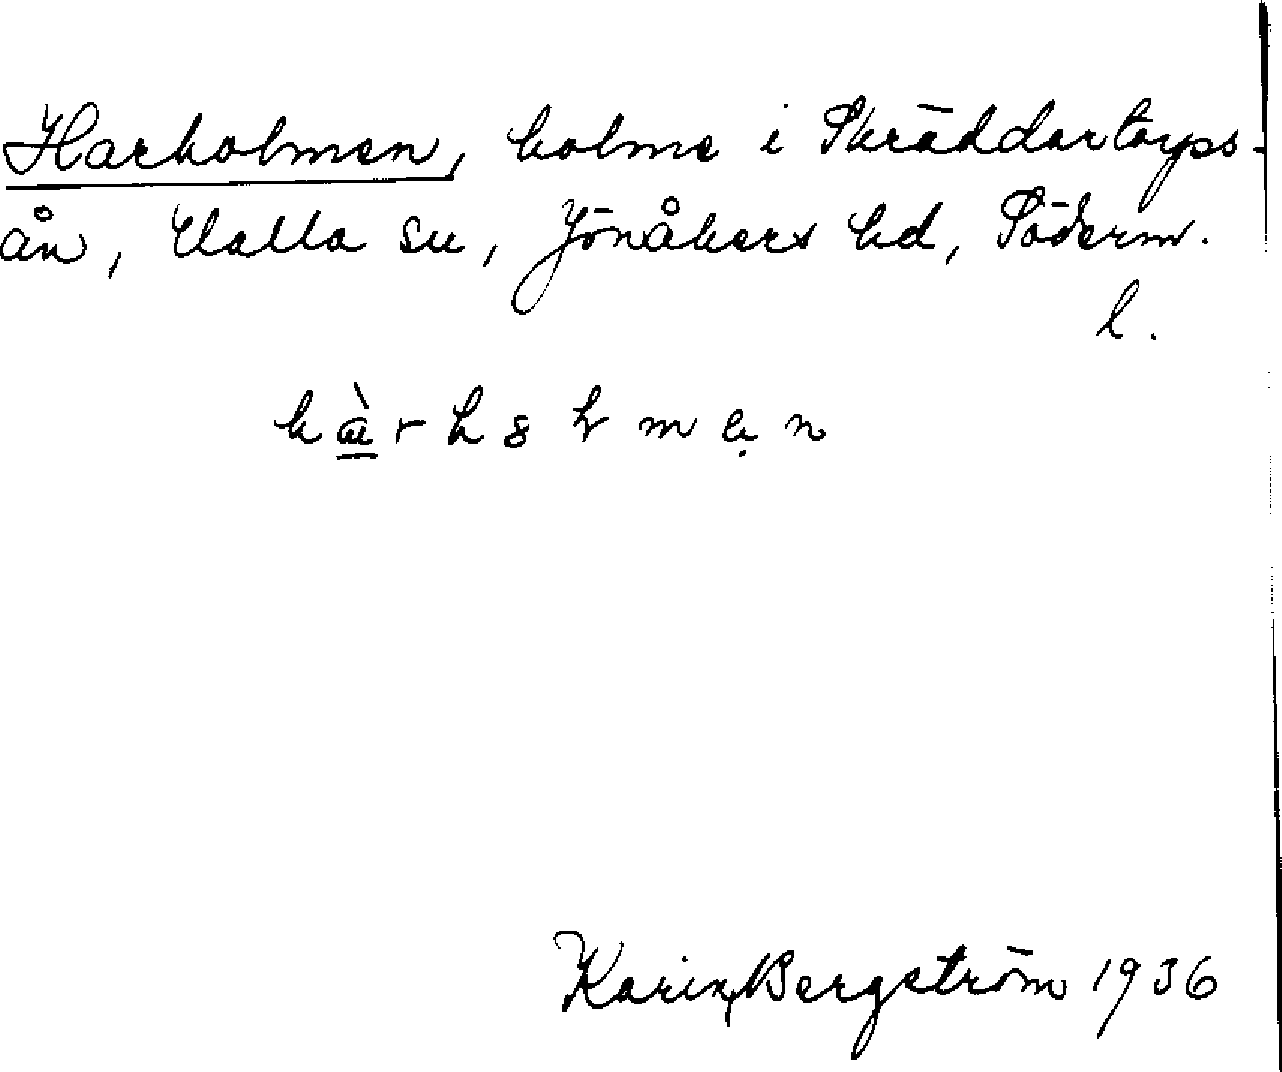 Harholmen, holme i Skräddartorps-
ån, Halla sn, Jönåkers hd, Söderm.
l.
Karin Bergström 1936